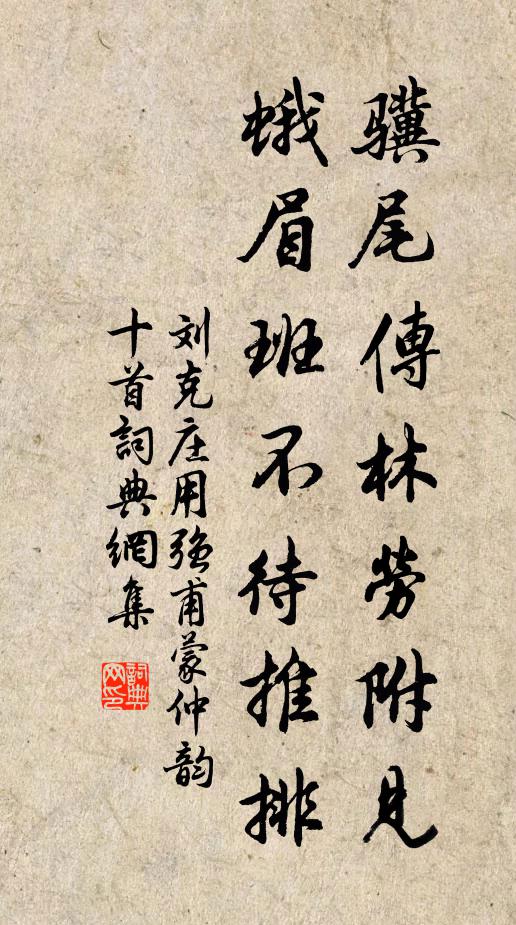 驥尾傳林勞附見
蛾眉班不待推排
刘克庄用强甫蒙仲韵
十首詞典網集
詞典网印